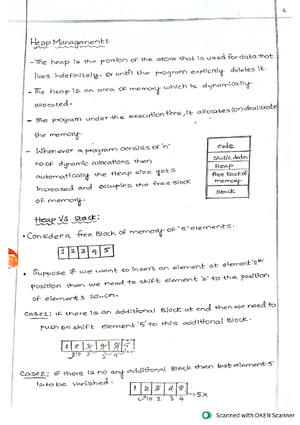 Heap Management:
- The heap is the portion of the store that is used for data that
lives indefinitely, or until the program explicitly deletes it.
- The heap is an area of memory which is dynamically
allocated.
- The program under the execution time, it allocates (or) deallocate
the memory.
- Whenever a program consists of 'n'
no of dynamic allocations then
automatically the heap size gets
increased and occupies the free block
of memory.
Code
Static data
Heap
free block of
memory
Stack
Heap Vs Stack:
• Consider a free Block of memory of '5' elements.
1 2 3 4 5
• Suppose if we want to insert an element at element
position then we need to shift element '2' to the position
of element 3 so..on.
Case1: if there is an additional Block at end then we need to
push on shift element '5' to this additional Block.
Case2: if there is no any additional Block then last element 5
is to be vanished.
5x
Scanned with OKEN Scanner